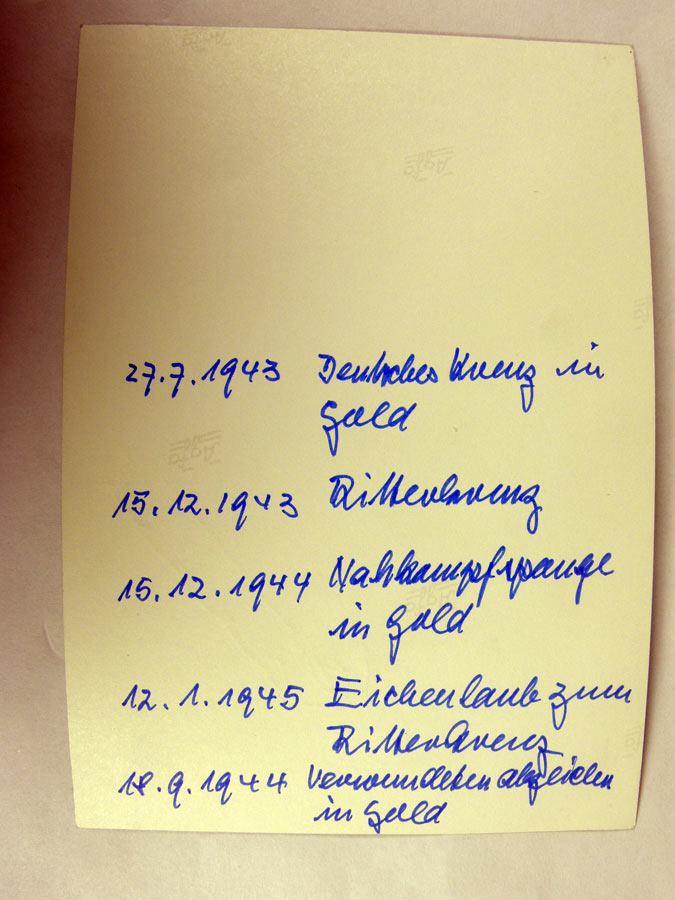 27.7.1943 Deutsches Kreuz in
Gold
15.12.1943 Ritterkreuz
15.12.1944 Nahkampfspange
in Gold
12.1.1945 Eichenlaub zum
Ritterkreuz
18.9.1944 Verwundetenabzeichen
in Gold
Agfa
Agfa